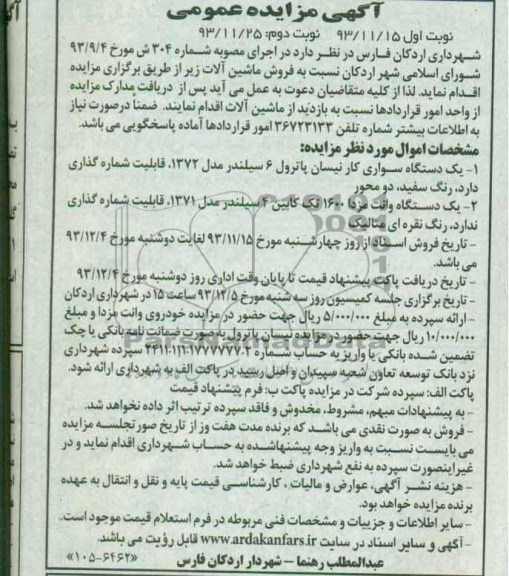 آگهی مزایده عمومی
نوبت اول ۹۳/۱۱/۱۵ نوبت دوم: ۹۳/۱۱/۲۵
شهرداری اردکان فارس در نظر دارد در اجرای مصوبه شماره ۳۰۴ ش مورخ ۹۳/۹/۴
شورای اسلامی شهر اردکان نسبت به فروش ماشین آلات زیر از طریق برگزاری مزایده
اقدام نماید. لذا از کلیه متقاضیان دعوت به عمل می آید پس از دریافت مدارک مزایده
از واحد امور قراردادها نسبت به بازدید از ماشین آلات اقدام نمایند. ضمناً درصورت نیاز
به اطلاعات بیشتر شماره تلفن ۳۶۷۲۳۱۳۳ امور قراردادها آماده پاسخگویی می باشد.
مشخصات اموال مورد نظر مزایده:
۱- یک دستگاه سواری کار نیسان پاترول ۶ سیلندر مدل ۱۳۷۲، قابلیت شماره گذاری
دارد، رنگ سفید، دو محور
۲- یک دستگاه وانت مزدا ۱۶۰۰ تک کابین ۴ سیلندر مدل ۱۳۷۱، قابلیت شماره گذاری
ندارد، رنگ نقره ای متالیک
- تاریخ فروش اسناد از روز چهارشنبه مورخ ۹۳/۱۱/۱۵ لغایت دوشنبه مورخ ۹۳/۱۲/۴
می باشد.
- تاریخ دریافت پاکت پیشنهاد قیمت تا پایان وقت اداری روز دوشنبه مورخ ۹۳/۱۲/۴
- تاریخ برگزاری جلسه کمیسیون روز سه شنبه مورخ ۹۳/۱۲/۵ ساعت ۱۵ در شهرداری اردکان
- ارائه سپرده به مبلغ ۵/۰۰۰/۰۰۰ ریال جهت حضور در مزایده خودروی وانت مزدا و مبلغ
۱۰/۰۰۰/۰۰۰ ریال جهت حضور در مزایده نیسان پاترول به صورت ضمانت نامه بانکی یا چک
تضمین شده بانکی یا واریز به حساب شماره ۴۴۱۱٫۱۱۱٫۱۷۷۷۷۷۷٫۲ سپرده شهرداری
نزد بانک توسعه تعاون شعبه سپیدان و اصل رسید در پاکت الف به شهرداری ارائه شود.
پاکت الف: سپرده شرکت در مزایده پاکت ب: فرم پیشنهاد قیمت
- به پیشنهادات مبهم، مشروط، مخدوش و فاقد سپرده ترتیب اثر داده نخواهد شد.
- فروش به صورت نقدی می باشد که برنده مدت هفت روز از تاریخ صورتجلسه مزایده
می بایست نسبت به واریز وجه پیشنهاشده به حساب شهرداری اقدام نماید و در
غیراینصورت سپرده به نفع شهرداری ضبط خواهد شد.
- هزینه نشر آگهی، عوارض و مالیات، کارشناسی قیمت پایه و نقل و انتقال به عهده
برنده مزایده خواهد بود.
- سایر اطلاعات و جزییات و مشخصات فنی مربوطه در فرم استعلام قیمت موجود است.
- آگهی و سایر اسناد در سایت www.ardakanfars.ir قابل رؤیت می باشد.
عبدالمطلب رهنما – شهردار اردکان فارس «۱۰۵-۶۴۶۲»